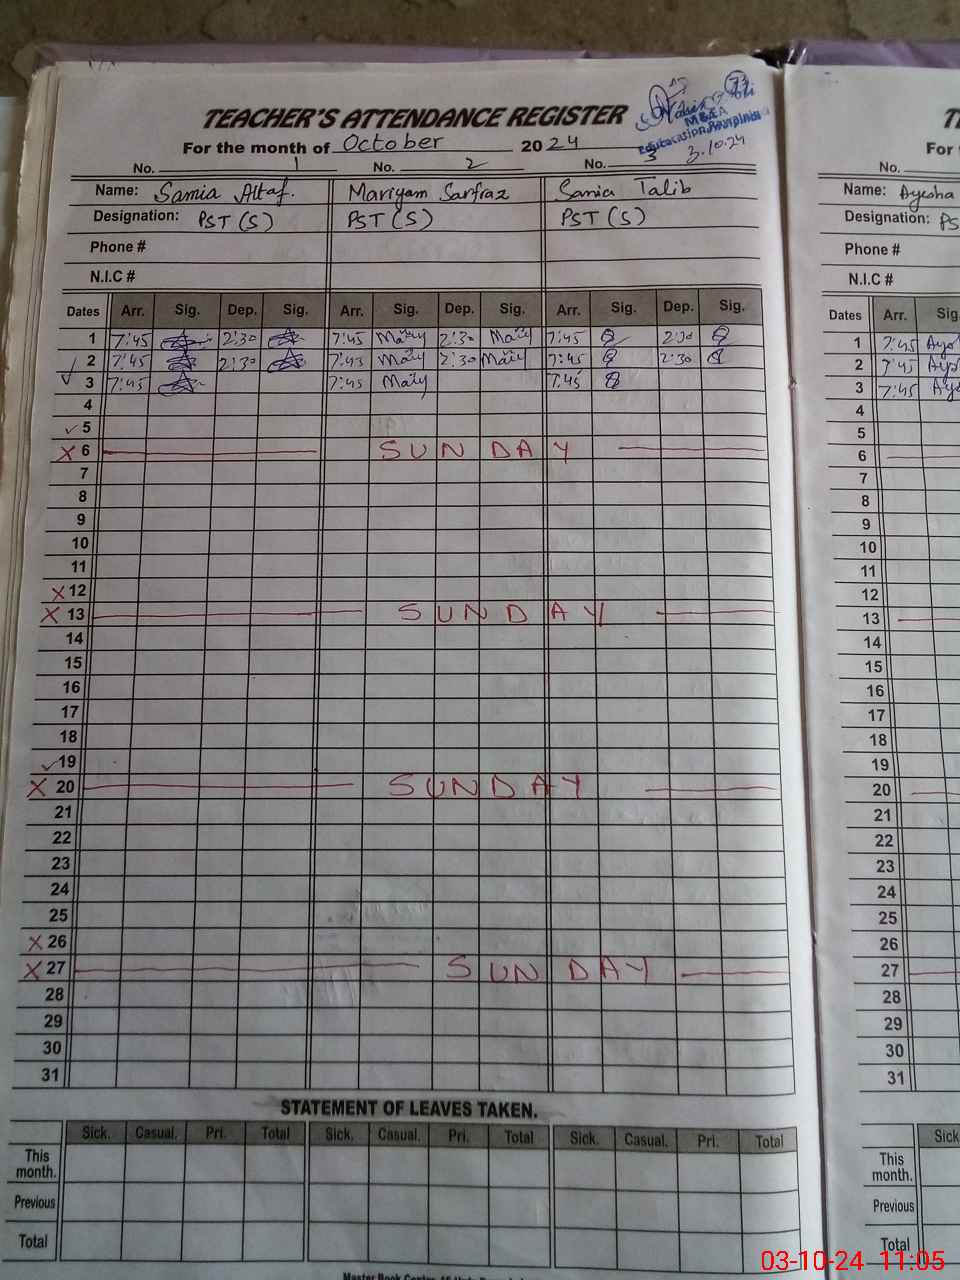 TEACHER'S ATTENDANCE REGISTER
73
MS&EA
3.10.24
For the month of October 2024
No. 1 No. 2 No. 3
Name: Samia Altaf. Mariyam Sarfraz Samia Talib
Designation: PST (S) PST (S) PST (S)
Phone #
N.I.C #
Dates Arr. Sig. Dep. Sig. Arr. Sig. Dep. Sig. Arr. Sig. Dep. Sig.
1 7:45 2:30 7:45 2:30 7:45 2:30
2 7:45 2:30 7:45 2:30 7:45 2:30
3 7:45 7:45 7:45
4
✓ 5
X 6 SUNDAY
7
8
9
10
11
X 12
X 13 SUNDAY
14
15
16
17
18
✓ 19
X 20 SUNDAY
21
22
23
24
25
X 26
X 27 SUNDAY
28
29
30
31
STATEMENT OF LEAVES TAKEN.
Sick. Casual. Pri. Total Sick. Casual. Pri. Total Sick. Casual. Pri. Total
This month.
Previous
Total
For
No.
Name: Ayesha
Designation: PS
Phone #
N.I.C #
Dates Arr. Sig
1 7:45
2 7:45
3 7:45
4
5
6
7
8
9
10
11
12
13
14
15
16
17
18
19
20
21
22
23
24
25
26
27
28
29
30
31
Sick
This month.
Previous
Total
03-10-24 11:05